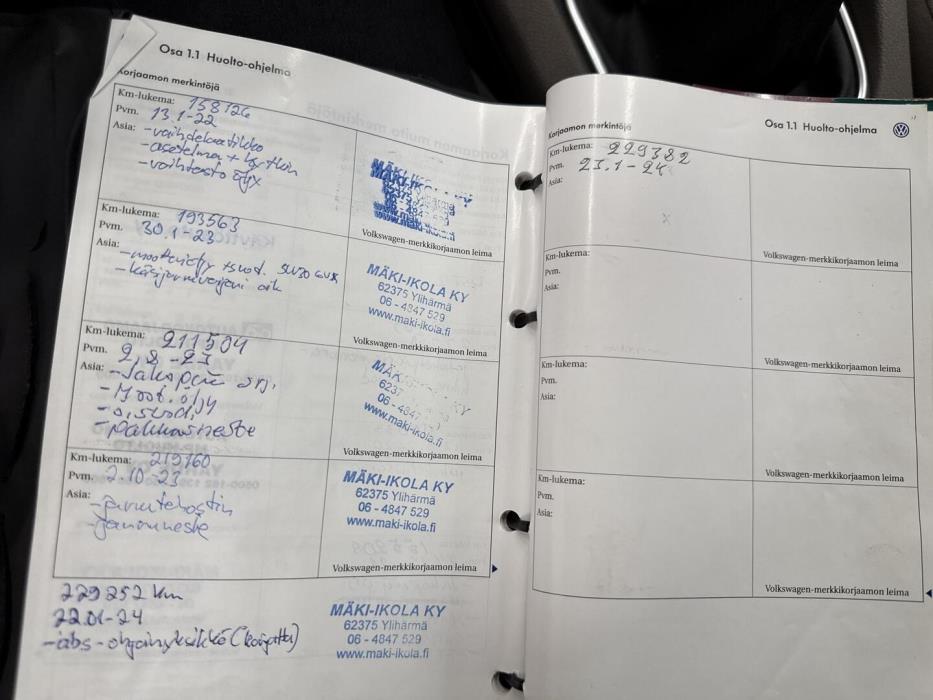 Osa 1.1 Huolto-ohjelma
Korjaamon merkintöjä
Km-lukema: 158126
Pvm. 13.1-22
Asia: -vaihdelaatikko
-asetelma + kytkin
-vaihteisto öljy
MÄKI-IKOLA KY
62375
06 - 4847 529
www.maki-ikola.fi
Volkswagen-merkkikorjaamon leima
Km-lukema: 193563
Pvm. 30.1-23
Asia:
-moottoriöljy +suod.
-käsijarruvaijeri oik
MÄKI-IKOLA KY
62375 Ylihärmä
06 - 4847 529
www.maki-ikola.fi
Volkswagen-merkkikorjaamon leima
Km-lukema: 211504
Pvm. 2,8-23
Asia: -Jakopää srj.
-Moot.öljy
-ö,suod,
-pakkasneste
MÄKI
6237
06 - 4847
www.maki-ikola.fi
Volkswagen-merkkikorjaamon leima
Km-lukema: 219160
Pvm. 2.10-23
Asia: -jarrutehostin
-jarruneste
MÄKI-IKOLA KY
62375 Ylihärmä
06 - 4847 529
www.maki-ikola.fi
Volkswagen-merkkikorjaamon leima
229252 km
22.01-24
-abs-ohjainyksikkö (korjattu)
MÄKI-IKOLA KY
62375 Ylihärmä
06 - 4847 529
www.maki-ikola.fi
Korjaamon merkintöjä
Osa 1.1 Huolto-ohjelma
Km-lukema: 229382
Pvm. 23.1-24
Asia:
Volkswagen-merkkikorjaamon leima
Km-lukema:
Pvm.
Asia:
Volkswagen-merkkikorjaamon leima
Km-lukema:
Pvm.
Asia:
Volkswagen-merkkikorjaamon leima
Km-lukema:
Pvm.
Asia:
Volkswagen-merkkikorjaamon leima